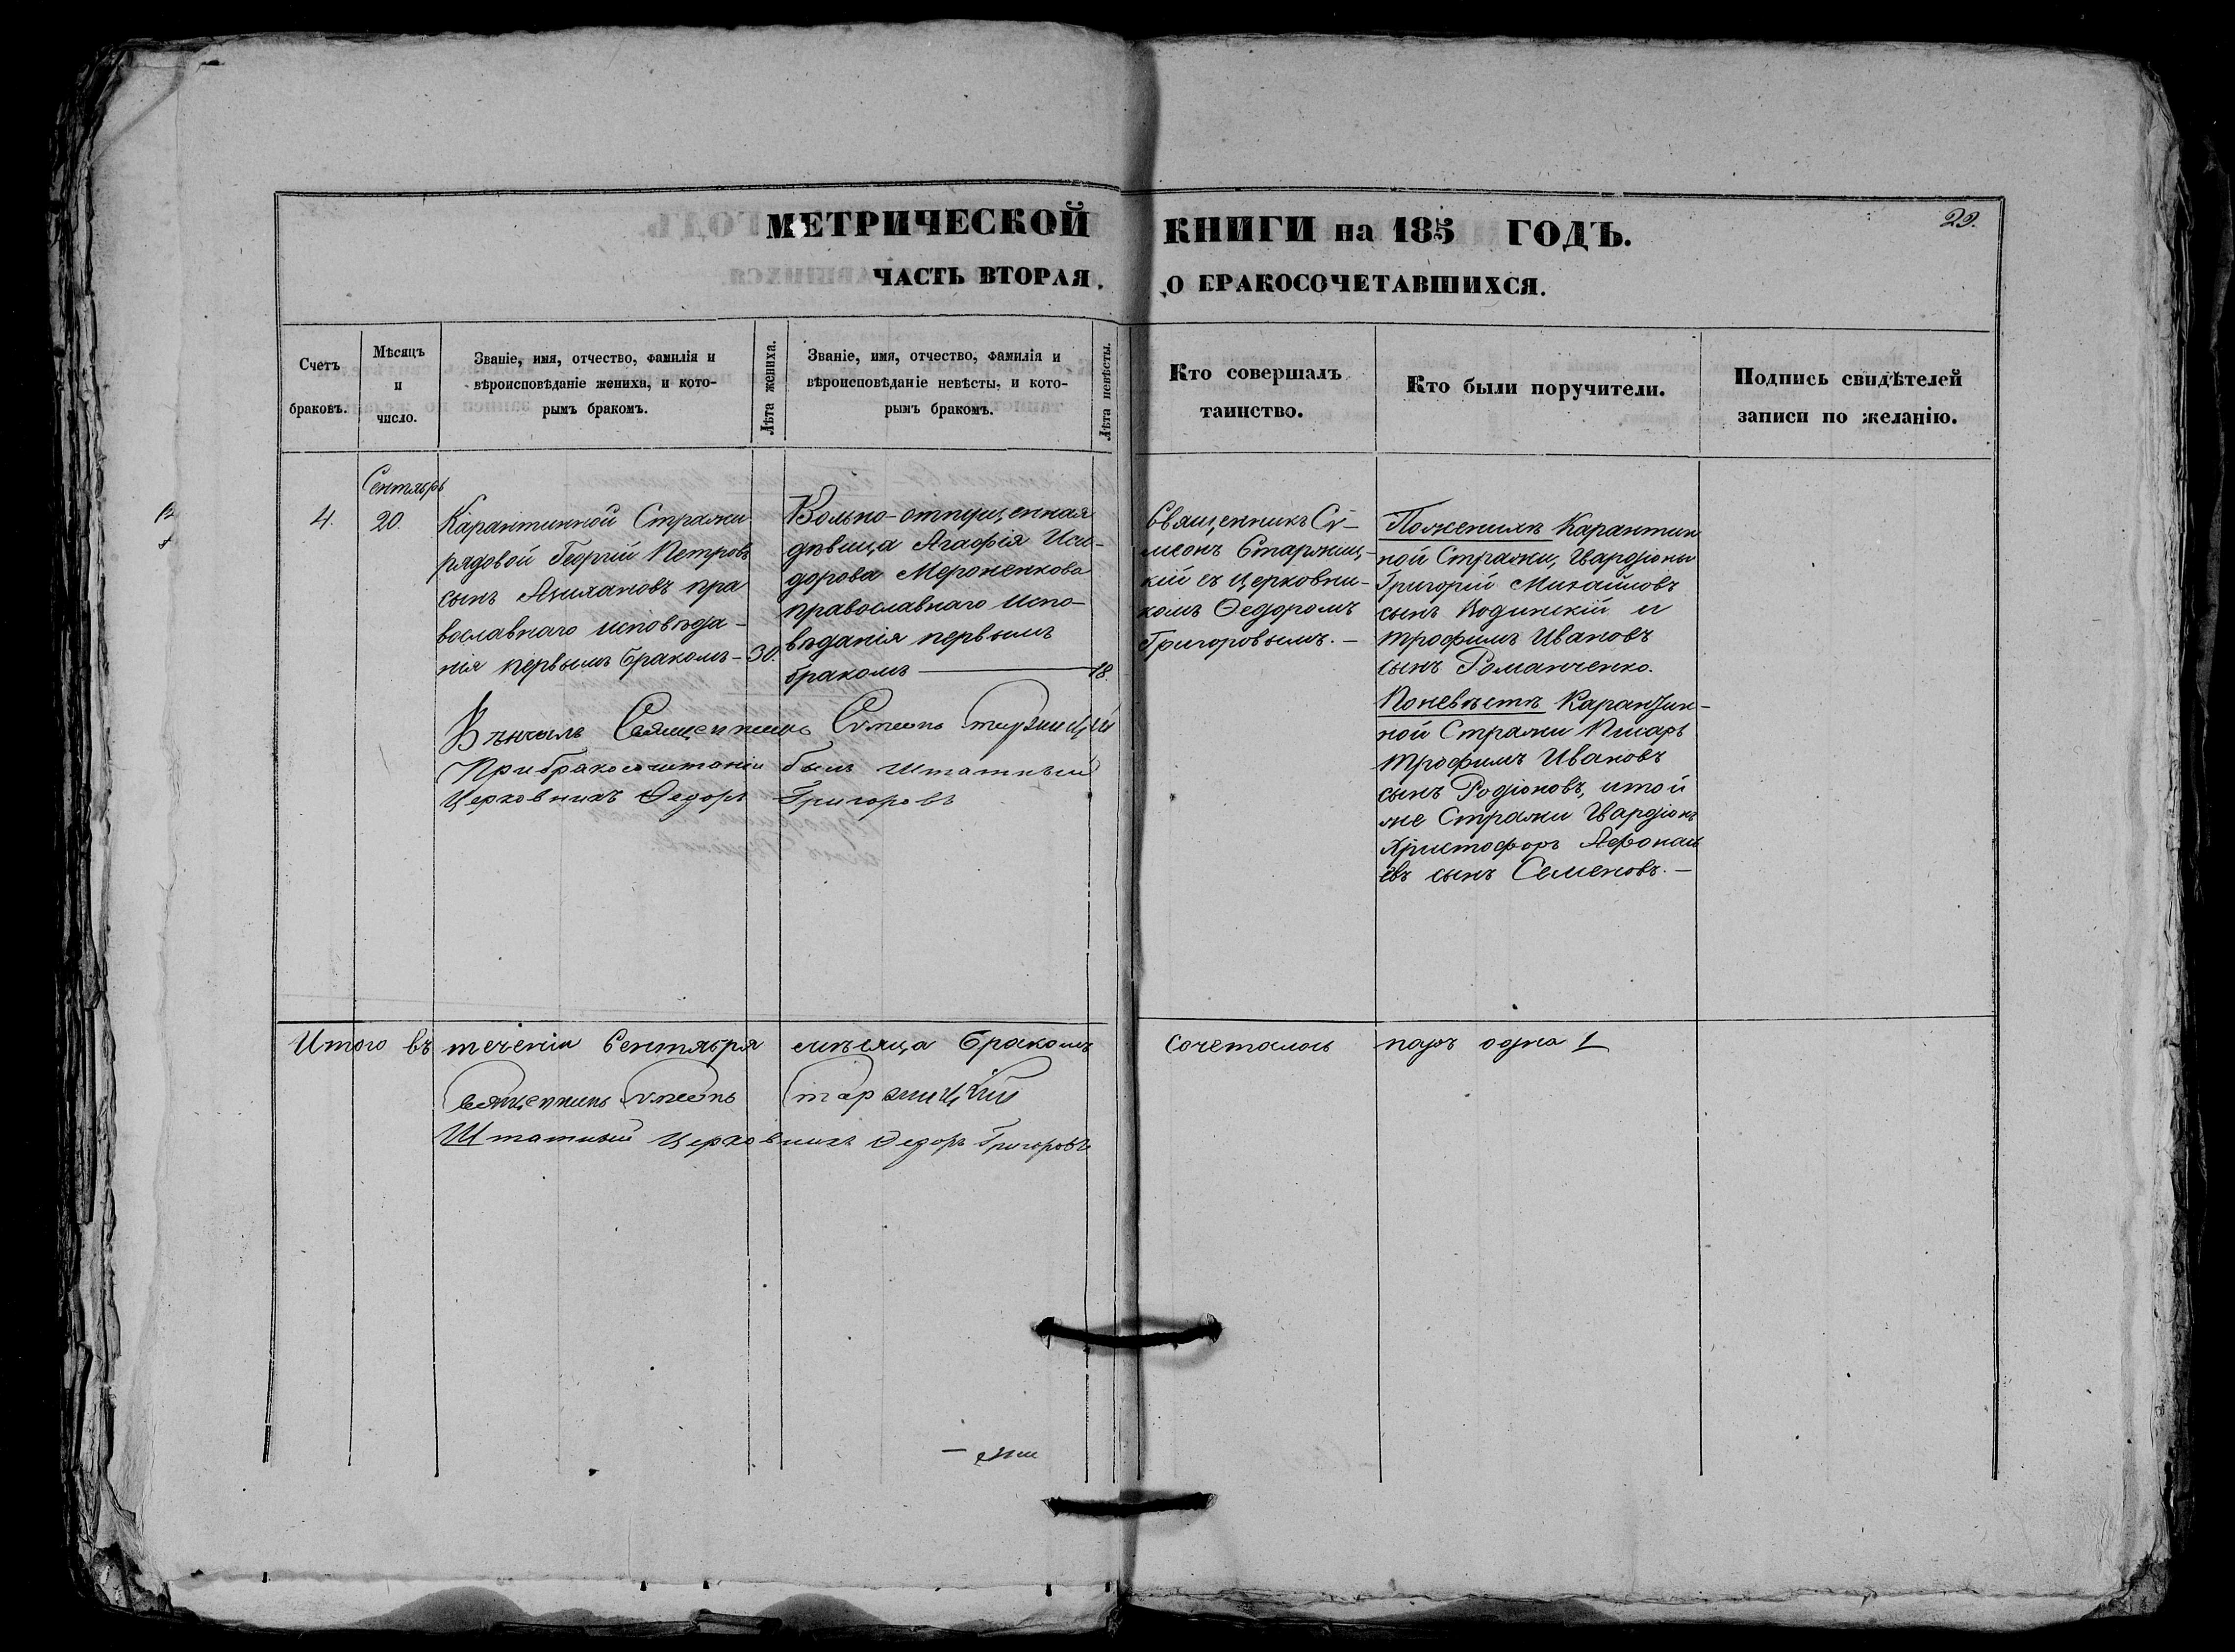 МЕТРИЧЕСКОЙ КНИГИ на 185 ГОДЪ.
29.
ЧАСТЬ ВТОРАЯ. О БРАКОСОЧЕТАВШИХСЯ.
Счетъ
браковъ.
Мѣсяцъ
и
число.
Званіе, имя, отчество, фамилія и
вѣроисповѣданіе жениха, и кото-
рымъ бракомъ.
Лѣта жениха.
Званіе, имя, отчество, фамилія и
вѣроисповѣданіе невѣсты, и кото-
рымъ бракомъ.
Лѣта невѣсты.
Кто совершалъ
таинство.
Кто были поручители.
Подпись свидѣтелей
записи по желанію.
4.
Сентябрь
20.
Карантинной Стражи
рядовой Георгій Петровъ
сынъ пра
вославнаго исповѣда-
нія первымъ бракомъ-
30.
Вольно-отпущенная
дѣвица Агафія Иси-
дорова Мероненкова
православнаго испо-
вѣданія первымъ
бракомъ
18.
Священникъ Сѵ-
меонъ Старжиц-
кій съ церковни-
комъ Ѳедоромъ
Григоровымъ.-
Поженихѣ Карантин
ной Стражи, Гвардіоны
Григорій Михайловъ
сынъ Водинскій и
Трофимъ Ивановъ
сынъ Романченко.
Поневѣстѣ Карантин-
ной Стражи Писарь
Трофимъ Ивановъ
сынъ Родіоновъ, итой
же Стражи Гвардіонъ
Христофоръ
евъ сынъ Семеновъ.-
Вѣнчалъ Священникъ Сѵмеонъ Старжицкій
Прибракосочитаніи былъ Штатный
Церковникъ Ѳедоръ Григоровъ
Итого въ теченіи Сентября мѣсяца бракомъ сочеталось паръ одна 1
Священникъ Сѵмеонъ Старжицкій
Штатный Церковникъ Ѳедоръ Григоровъ